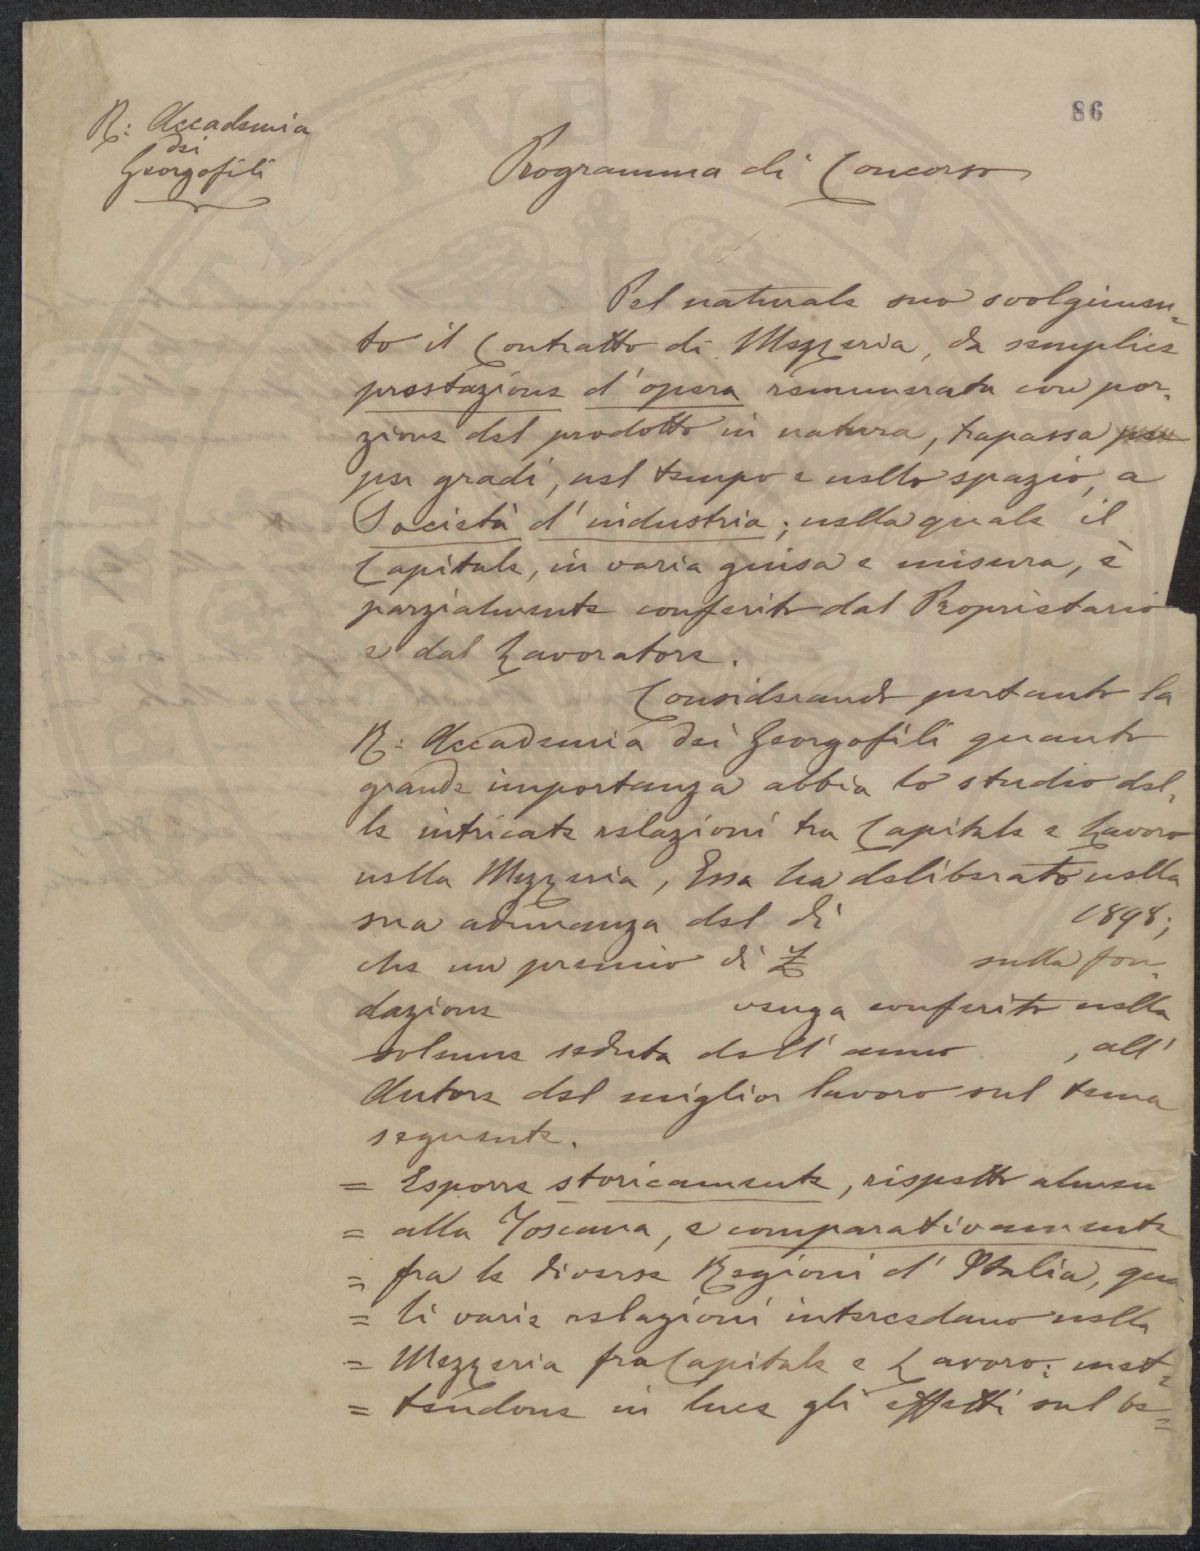 86
R: Accademia
dei
Georgofili
Programma di Concorso
Pel naturale suo svolgimen=
to il Contratto di Mezzeria, da semplice
prestazione d'opera remunerata con por=
zione del prodotto in natura, trapassa per
per gradi, nel tempo e nello spazio, a
Società d'industria; nella quale il
Capitale, in varia guisa e misura, è
parzialmente conferito dal Proprietario
e dal Lavoratore.
Considerando pertanto la
R: Accademia dei Georgofili quanto
grande importanza abbia lo studio del=
le intricate relazioni tra Capitale e Lavoro
nella Mezzeria, Essa ha deliberato nella
sua adunanza del dì 1898;
che un premio di £ sulla fon=
dazione venga conferito nella
solenne seduta dell'anno , all'
Autore del miglior lavoro sul tema
seguente.
= Esporre storicamente, rispetto almen
= alla Toscana, e comparativamente
= fra le diverse Regioni d'Italia, qua
= li varie relazioni intercedano nella
= Mezzeria fra Capitale e Lavoro: met=
= tendone in luce gli effetti sul be=